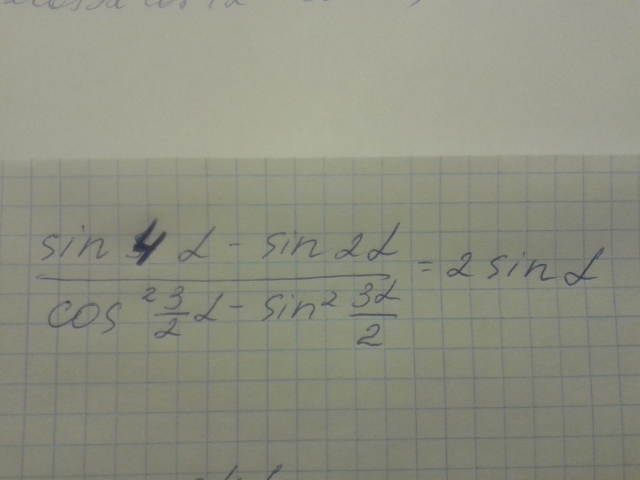 sin 4 α - sin 2α
cos² 3/2 α - sin² 3α/2 = 2 sin α